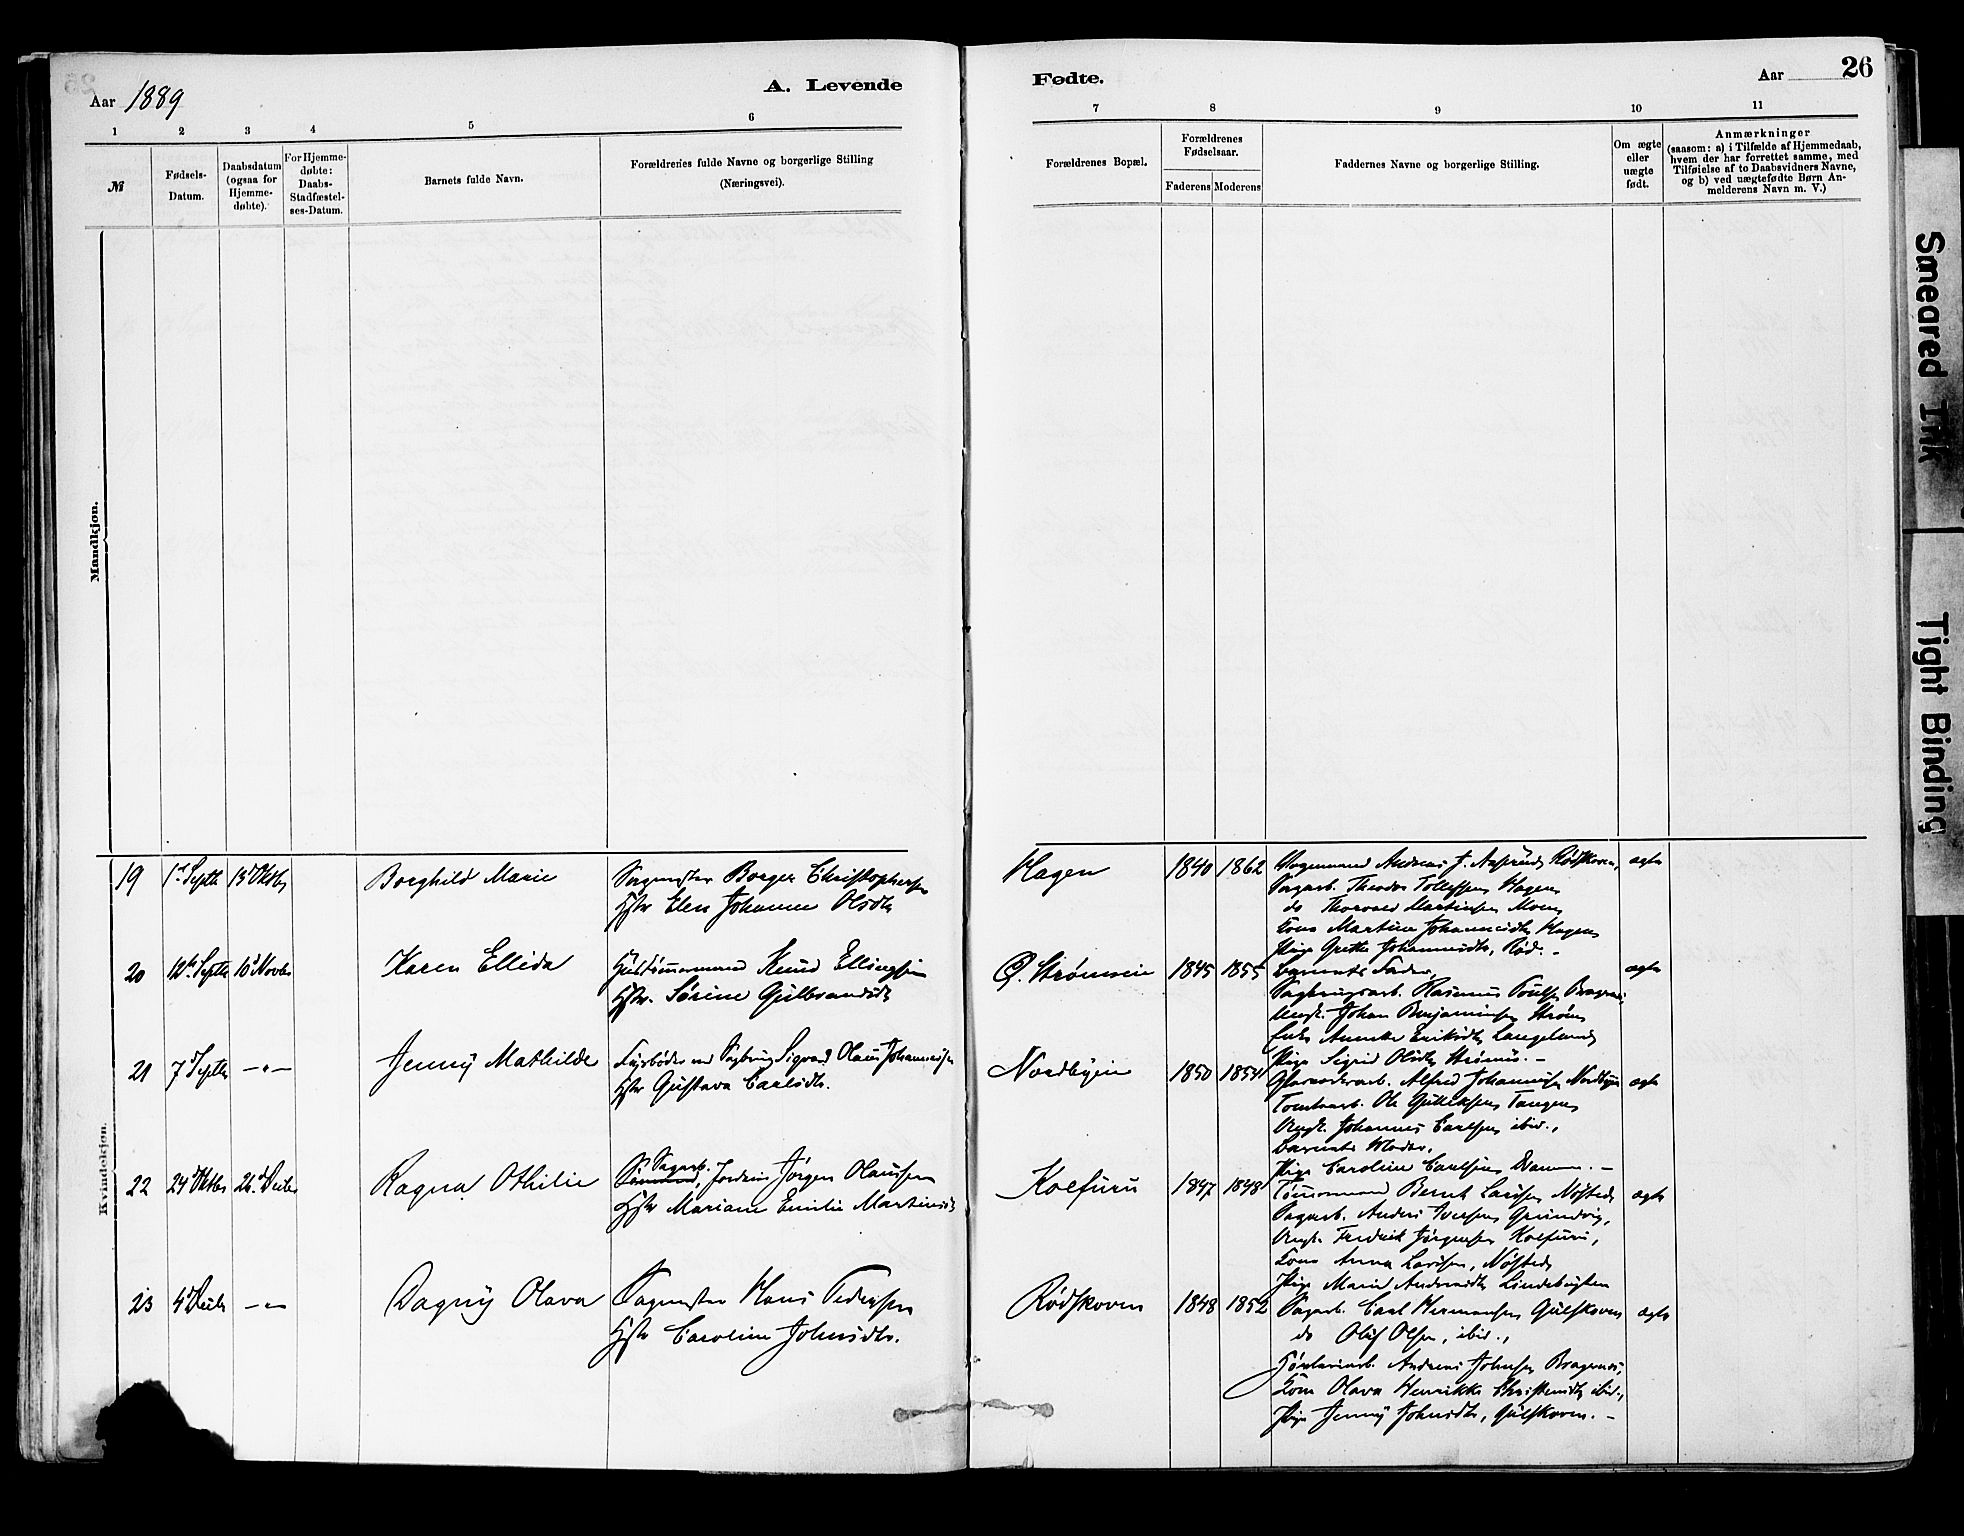 Aar 1889
A. Levende
Fødte.
Aar
26
1 2 3 4 5 6 7 8 9 10 11
№
Fødsels-
Datum.
Daabsdatum
(ogsaa for
Hjemme-
døbte).
For Hjemme-
døbte:
Daabs-
Stadfæstel-
ses-Datum.
Barnets fulde Navn.
Forældrenes fulde Navne og borgerlige Stilling
(Næringsvei).
Forældrenes Bopæl.
Forældrenes
Fødselsaar.
Faderens Moderens
Faddernes Navne og borgerlige Stilling.
Om ægte
eller
uægte
født.
Anmærkninger
(saasom: a) i Tilfælde af Hjemmedaab,
hvem der har forrettet samme, med
Tilføielse af to Daabsvidners Navne,
og b) ved uægtefødte Børn An-
melderens Navn m. V.)
Mandkjøn.
Kvindekjøn.
19 1 Septbr 13 Oktbr Borghild Marie
Sagmester Borger Christophersen
Hstr Elen Johanne Olsdtr
Hagen 1840 1862
Andreas J. Rødskoven, ægte
Sagarb. Theodor Tollefsen Hagen
do Thorvald Martinsen Moen
Kone Martine Johannesdtr Hagen
Pige Grethe Johannesdtr, Rød. -
20 12 Septbr 10 Novbr Karen Ellida
Hustømmermand Knud Ellingsen
Hstr. Sørine Gulbrandsdtr
Ø. Strømmen 1845 1855
Barnets Fader, ægte
Rasmus Poulsen Bragernes,
Ungk. Johan Benjaminsen Strøm
Enke Annette Eriksdtr Langeland
Pige Sigrid Olsdtr Strøm. -
21 7 Septbr -"- Jenny Mathilde
Fyrbøder ved Sagbrug Sigvard Olaus Johannesen
Hstr Gustava Carlsdtr.
Nordbyen 1850 1854
Alfred Johannesen Nordbyen ægte
Tomtearb. Ole Gulliksen Tangen
Ungk. Johannes Carlsen ibid.,
Barnets Moder,
Pige Caroline Carlsen
22 24 Oktbr 26 Decbr Ragna Othilie
Sagarb. Jørgen Olaussen
Hstr Mariane Emilie Martinsdtr
Kolfuru 1847 1848
Tømmermand Bernt Larsen Nøsted ægte
Sagarb. Anders Iversen Grundvig,
Ungk. Fredrik Jørgensen Kolfuru,
Kone Anna Larsen, Nøsted
Pige Marie Andersdtr
23 4 Decbr -"- Dagny Olava
Sagmester Hans Pedersen
Hstr Caroline Johnsdtr.
Rødskoven 1848 1852
Sagarb. Carl Hermansen Gulskoven ægte
do Oluf Olsen, ibid.,
Andreas Johnsen Bragernes,
Kone Olava Henrikke Christensdtr ibid.,
Pige Jenny Johnsdtr, Gulskoven. -
Smeared Ink
Tight Binding